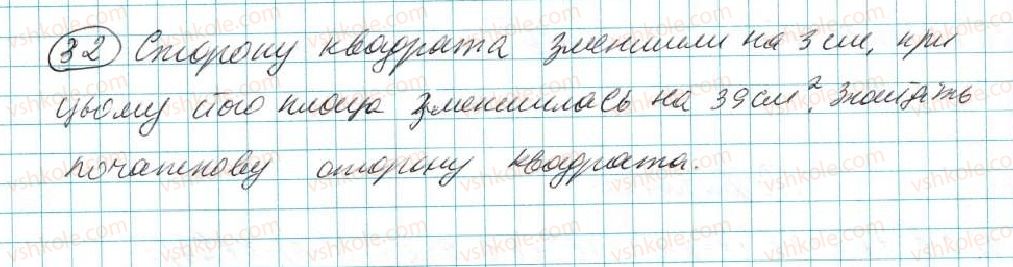 32 Сторону квадрата зменшили на 3 см, при
цьому його площа зменшилась на 39 см². Знайдіть
початкову сторону квадрата.